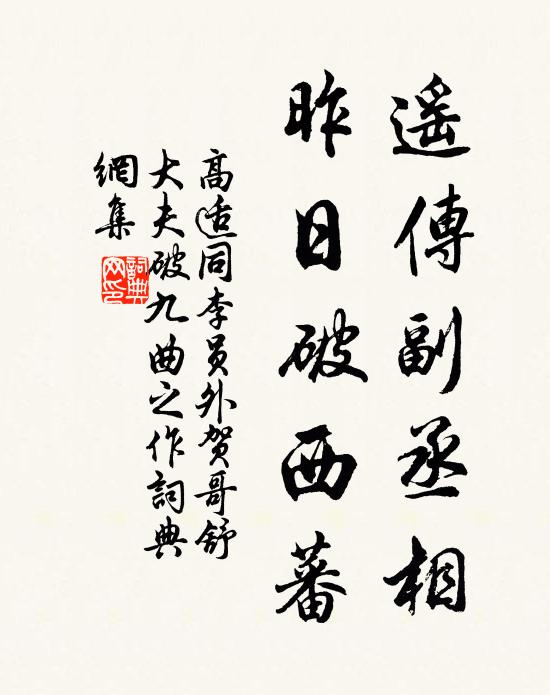 遥傳副丞相
昨日破西蕃
高适同李员外贺哥舒
大夫破九曲之作詞典
網集
詞典
网